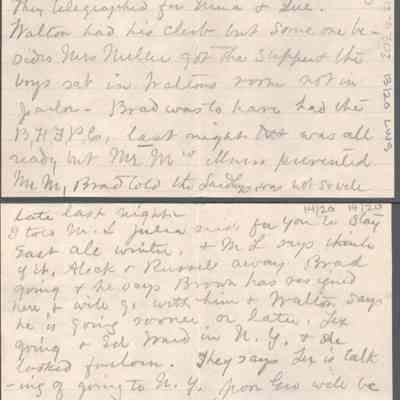 They telegraphed for Mina & Sue.
Walton had his club but some one be-
sides Mrs Miller got the supper & the
boys sat in Waltons room not in
parlor - Brad was to have had the
last night was all
ready but Mr. Ms illness prevented
Mr M, Brad told the was not so well
late last night
I told M. L Julia said for you to stay
East all winter, & M L says
Aleck & Russell away. Brad
going & he says Brown has resigned
here, & will go with him & Walton says
he is going sooner or later. Lex
going & Ed Ward in N. Y. & she
looked forlorn. They say Lex is talk
-ing of going to N. Y. poor Geo will be
14/20 14/20
13/20